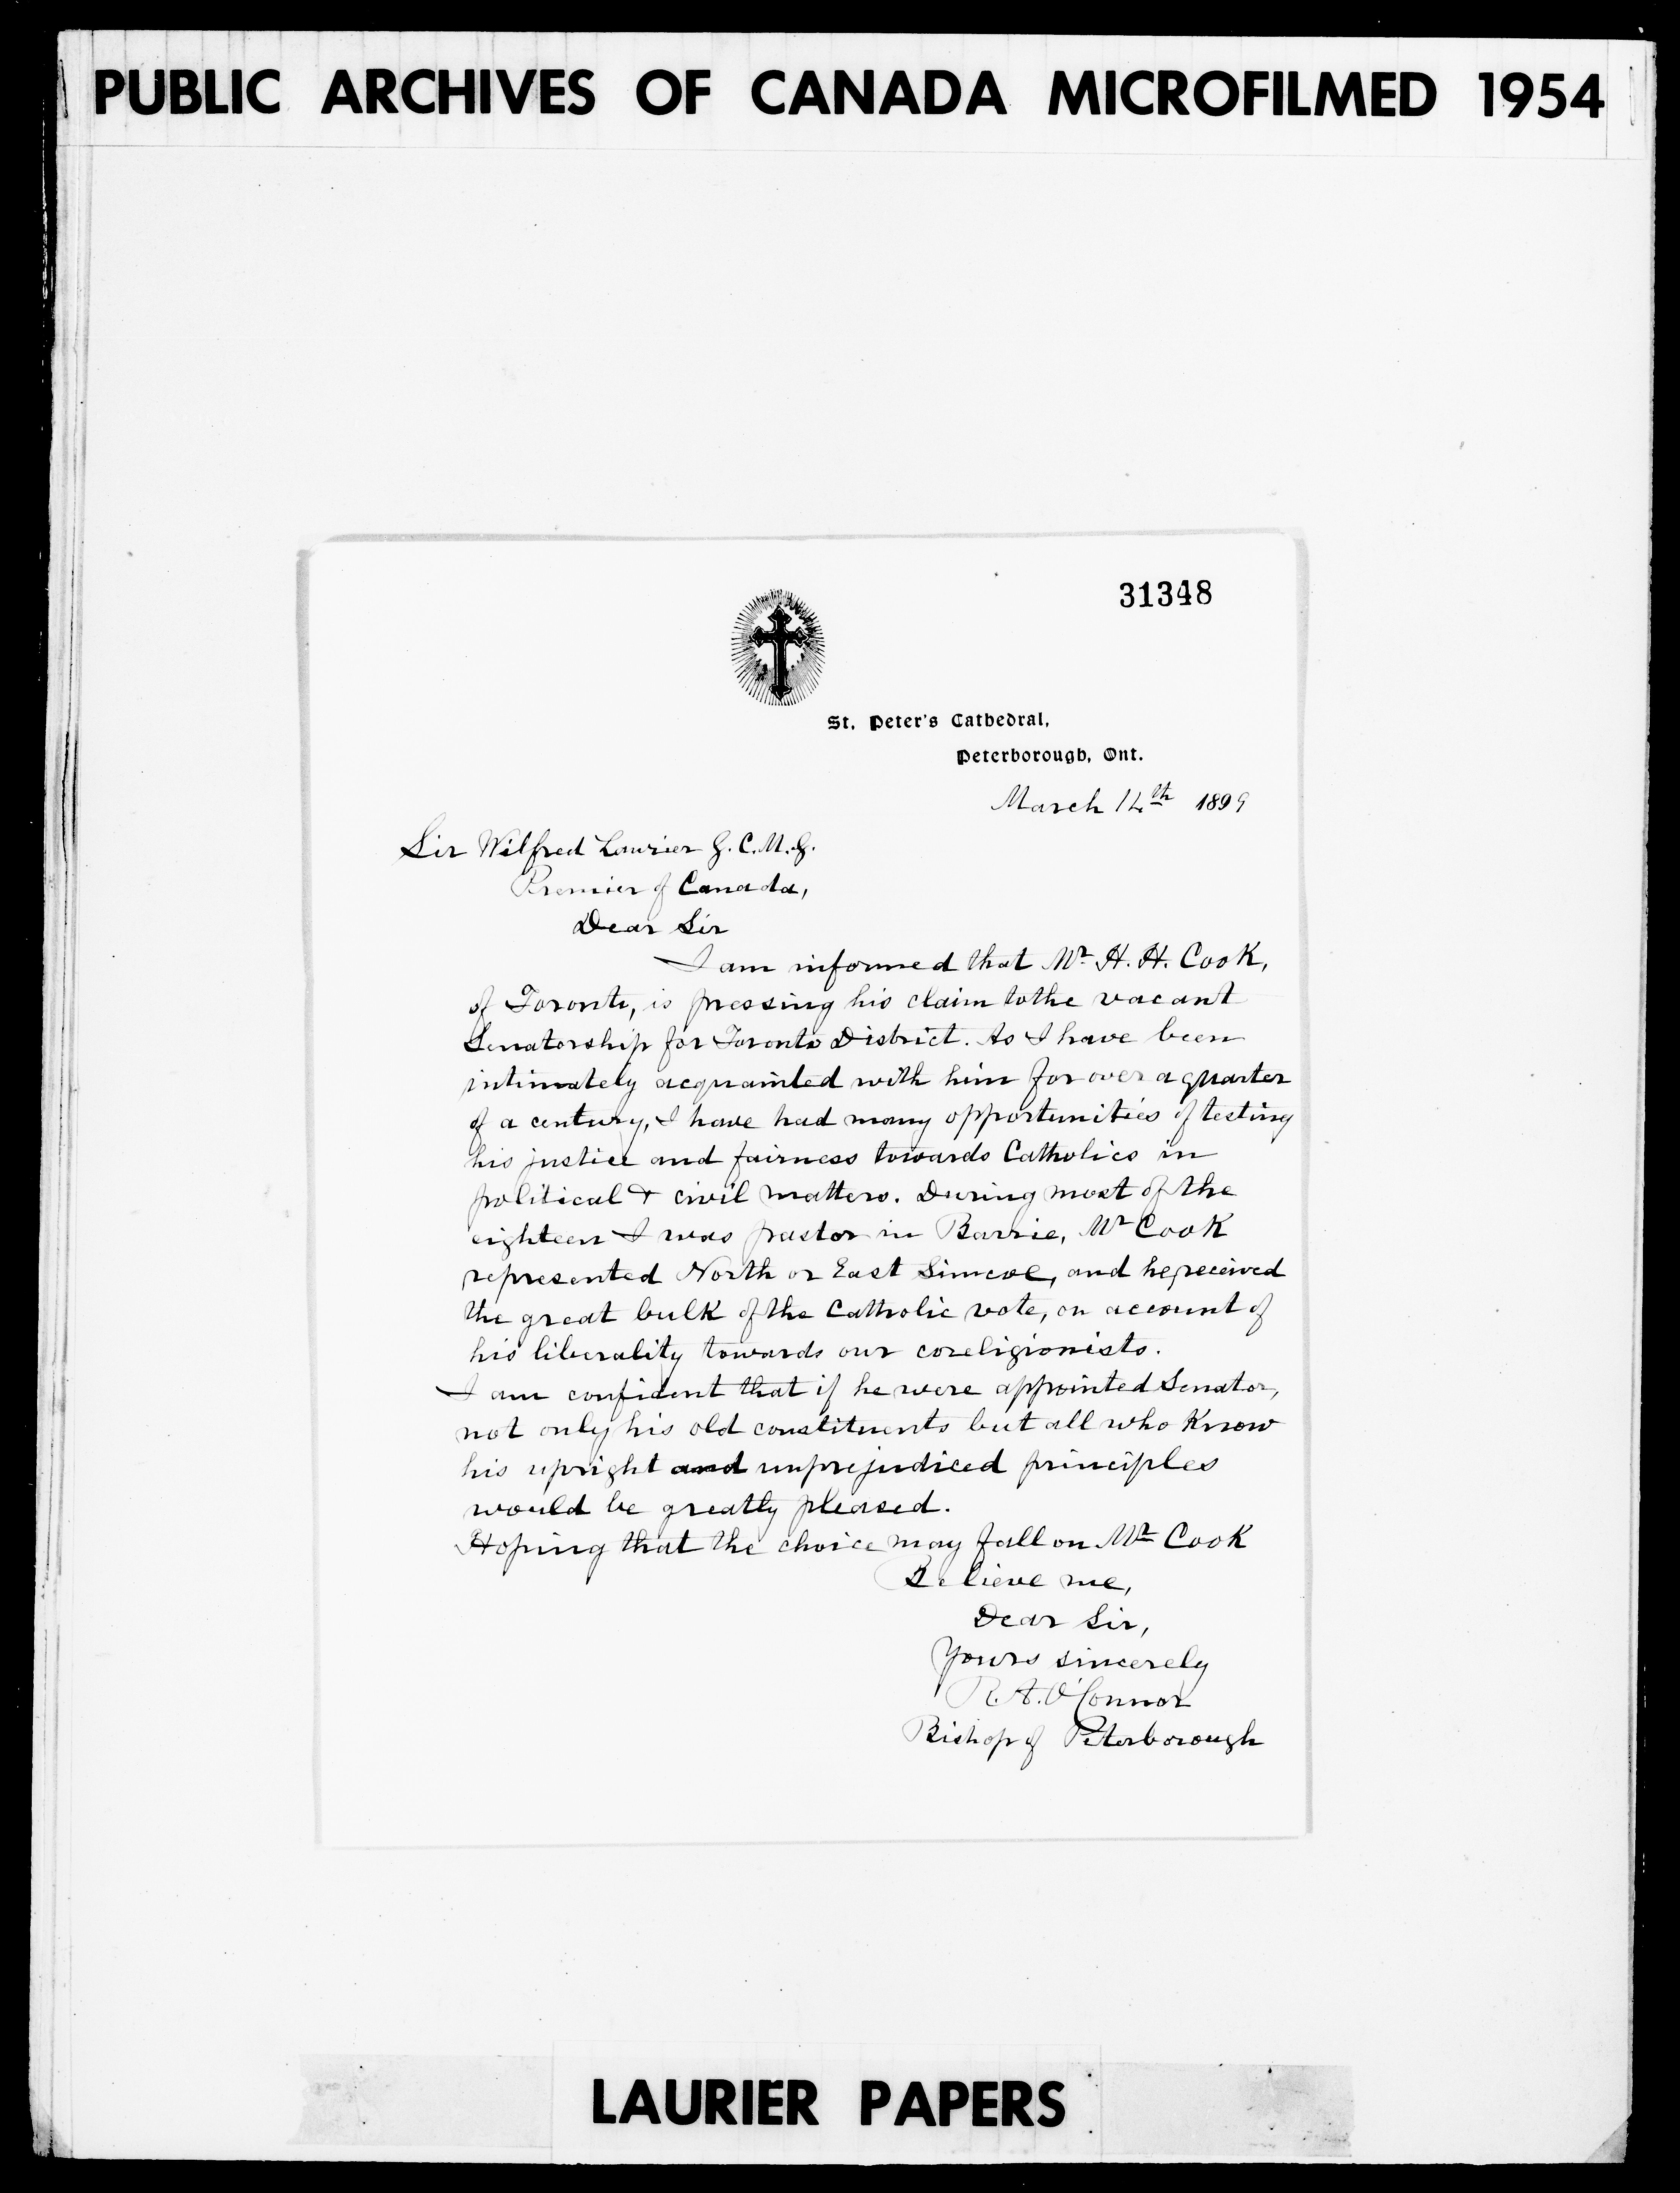 PUBLIC ARCHIVES OF CANADA MICROFILMED 1954
31348
St. Peter's Cathedral,
Peterborough, Ont.
March 14th 1899
Sir Wilfred Laurier G.C.M.G.
Premier of Canada,
Dear Sir
I am informed that Mr H. H. Cook,
of Toronto, is pressing his claim to the vacant
Senatorship for Toronto District. As I have been
intimately acquainted with him for over a quarter
of a century, I have had many opportunities of testing
his justice and fairness towards Catholics in
political & civil matters. During most of the
eighteen I was pastor in Barrie, Mr Cook
represented North or East Simcoe, and he received
the great bulk of the Catholic vote, on account of
his liberality towards our coreligionists.
I am confident that if he were appointed Senator,
not only his old constituents but all who know
his upright and unprejudiced principles
would be greatly pleased.
Hoping that the choice may fall on Mr Cook
Believe me,
Dear Sir,
Yours sincerely
R. A. O'Connor
Bishop of Peterborough
LAURIER PAPERS